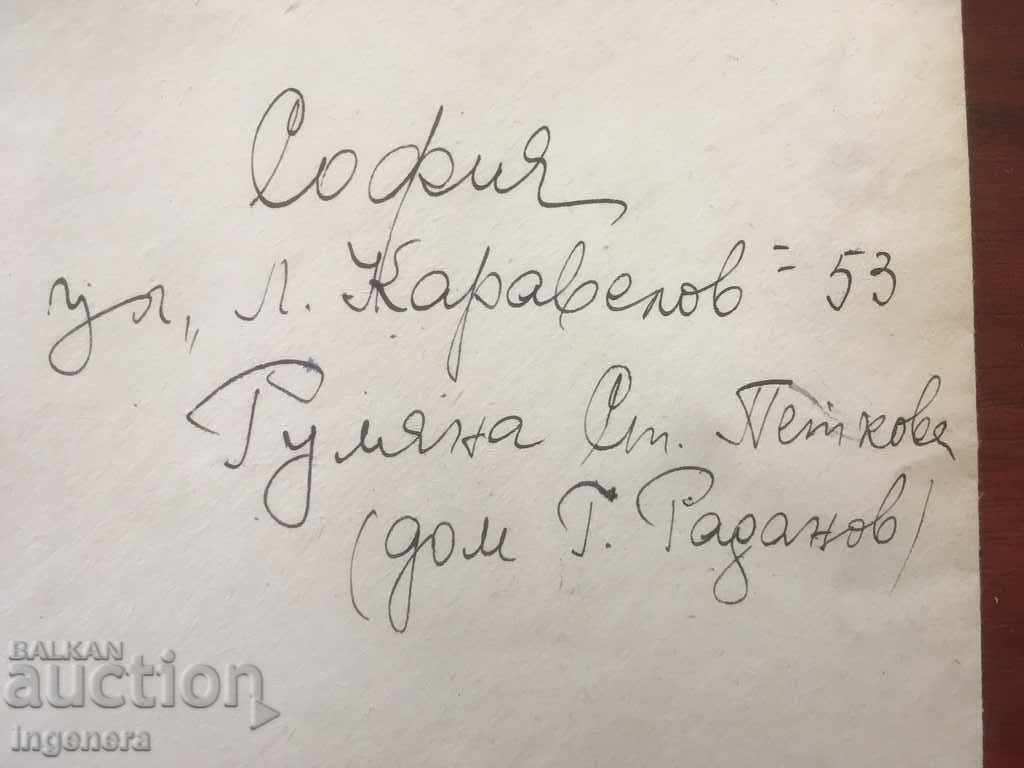 София
ул. „Л. Каравелов" - 53
Румяна Ст. Петкова
(дом Г. Раданов)
BALKAN
auction
ingenera